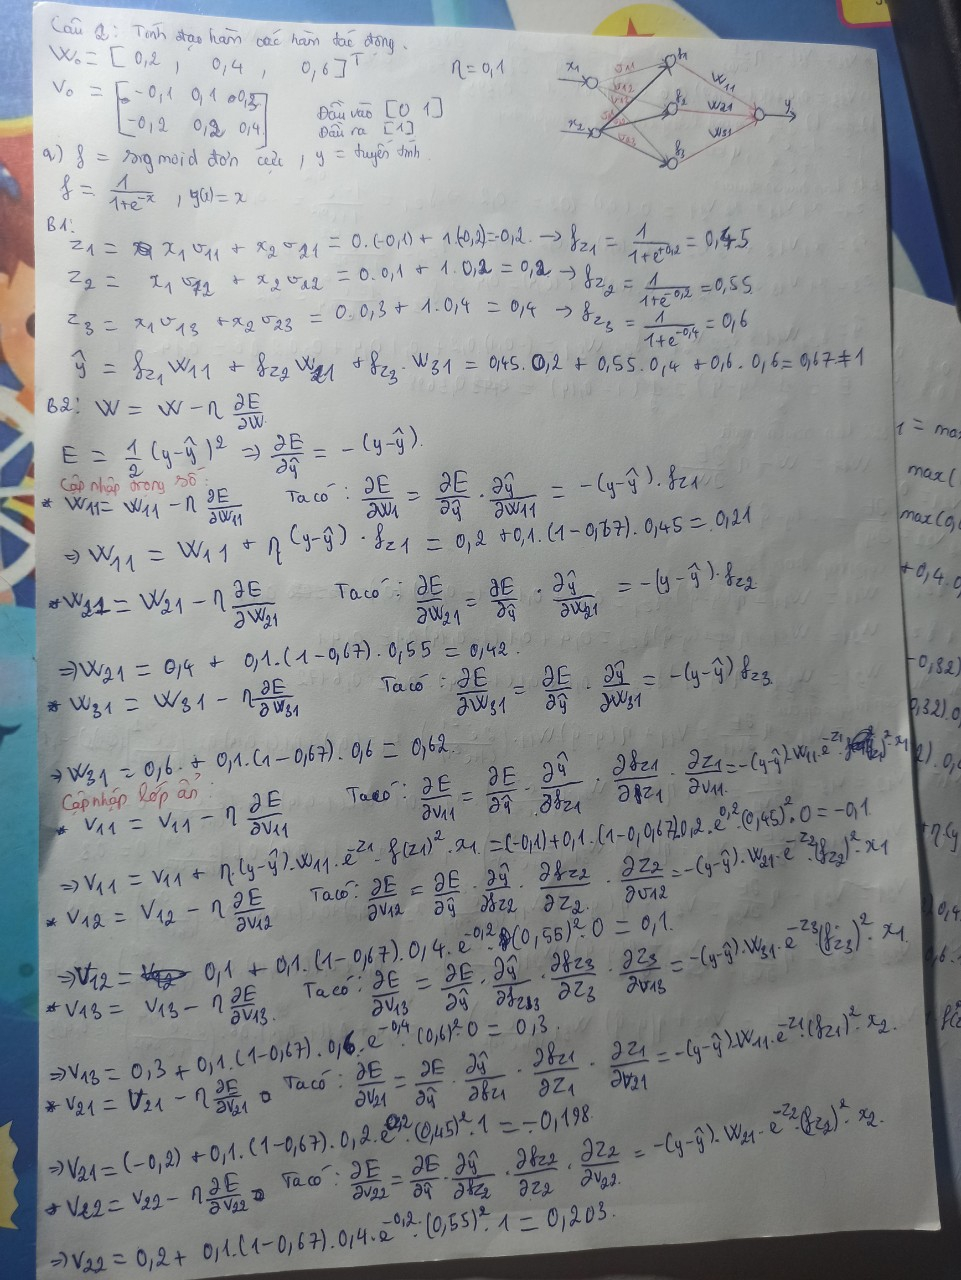 Câu 2: Tính đạo hàm các hàm tác động.
W₀ = [0,2 , 0,4 , 0,6]ᵀ η = 0,1
V₀ = [-0,1 0,1 0,3
-0,2 0,2 0,4] Đầu vào [0 1]
Đầu ra [1]
x₁ x₂ f₁ f₂ f₃ W11 W21 W31 y
a) f = sigmoid đơn cực, y = tuyến tính.
f = 1/(1+e^-x) , y(x) = x
B1:
z1 = x1 v11 + x2 v21 = 0.(-0,1) + 1.(-0,2) = -0,2 → fz1 = 1/(1+e^+0,2) = 0,45
z2 = x1 v12 + x2 v22 = 0.0,1 + 1.0,2 = 0,2 → fz2 = 1/(1+e^-0,2) = 0,55
z3 = x1 v13 + x2 v23 = 0.0,3 + 1.0,4 = 0,4 → fz3 = 1/(1+e^-0,4) = 0,6
ŷ = fz1 W11 + fz2 W21 + fz3. W31 = 0,45.0,2 + 0,55.0,4 + 0,6.0,6 = 0,67 ≠ 1
B2: W = W - η ∂E/∂W
E = 1/2 (y-ŷ)² ⇒ ∂E/∂ŷ = -(y-ŷ).
Cập nhập trọng số:
* W11 = W11 - η ∂E/∂W11 Ta có: ∂E/∂W1 = ∂E/∂ŷ . ∂ŷ/∂W11 = -(y-ŷ). fz1
⇒ W11 = W11 + η(y-ŷ). fz1 = 0,2 + 0,1.(1-0,67).0,45 = 0,21
* W21 = W21 - η ∂E/∂W21 Ta có: ∂E/∂W21 = ∂E/∂ŷ . ∂ŷ/∂W21 = -(y-ŷ). fz2
⇒ W21 = 0,4 + 0,1.(1-0,67).0,55 = 0,42.
* W31 = W31 - η ∂E/∂W31 Ta có: ∂E/∂W31 = ∂E/∂ŷ . ∂ŷ/∂W31 = -(y-ŷ) fz3.
⇒ W31 = 0,6 + 0,1.(1-0,67).0,6 = 0,62.
Cập nhập lớp ẩn:
* V11 = V11 - η ∂E/∂V11 Ta có: ∂E/∂V11 = ∂E/∂ŷ . ∂ŷ/∂fz1 . ∂fz1/∂fz1 . ∂z1/∂V11 = -(y-ŷ).W11.e^-z1. ² . x1
⇒ V11 = V11 + η.(y-ŷ).W11.e^-z1. f(z1)². x1 = (-0,1) + 0,1.(1-0,067)0,2.e^0,2.(0,45)².0 = -0,1
* V12 = V12 - η ∂E/∂V12 Ta có: ∂E/∂V12 = ∂E/∂ŷ . ∂ŷ/∂fz2 . ∂fz2/∂z2 . ∂z2/∂V12 = -(y-ŷ).W21.e^-z2(fz2)². x1
⇒ V12 = 0,1 + 0,1.(1-0,67).0,4.e^-0,2.(0,55)².0 = 0,1.
* V13 = V13 - η ∂E/∂V13. Ta có: ∂E/∂V13 = ∂E/∂ŷ . ∂ŷ/∂fz3 . ∂fz3/∂z3 . ∂z3/∂V13 = -(y-ŷ).W31.e^-z3(fz3)². x1.
⇒ V13 = 0,3 + 0,1.(1-0,67).0,6.e^-0,4.(0,6)².0 = 0,3.
* V21 = V21 - η ∂E/∂V21 Ta có: ∂E/∂V21 = ∂E/∂ŷ . ∂ŷ/∂fz1 . ∂fz1/∂z1 . ∂z1/∂V21 = -(y-ŷ).W11.e^-z1(fz1)². x2.
⇒ V21 = (-0,2) + 0,1.(1-0,67).0,2.e^0,2.(0,45)².1 = -0,198.
* V22 = V22 - η ∂E/∂V22 Ta có: ∂E/∂V22 = ∂E/∂ŷ . ∂ŷ/∂fz2 . ∂fz2/∂z2 . ∂z2/∂V22. = -(y-ŷ).W21.e^-z2.(fz2)². x2.
⇒ V22 = 0,2 + 0,1.(1-0,67).0,4.e^-0,2.(0,55)².1 = 0,203.